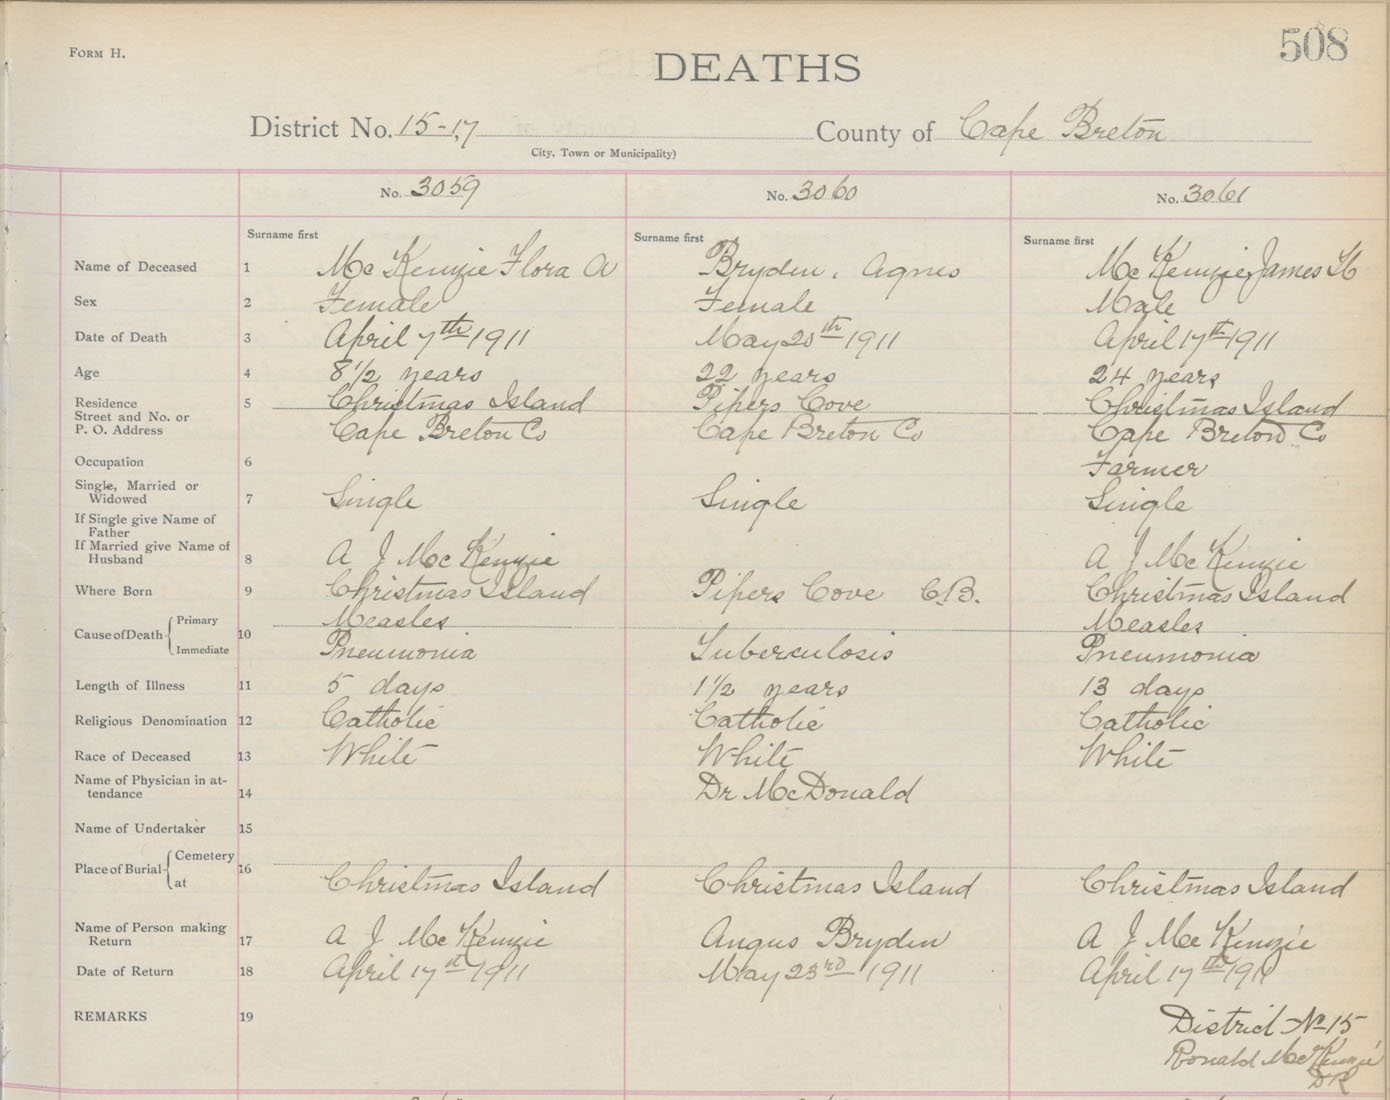 508
FORM H.
DEATHS
District No. 15-17 County of Cape Breton
City, Town or Municipality)
No. 3059 No. 3060 No. 3061
Surname first Surname first Surname first
Name of Deceased 1 McKenzie Flora A Bryden, Agnes McKenzie, James H
Sex 2 Female Female Male
Date of Death 3 April 7th 1911 May 20th 1911 April 17th 1911
Age 4 8 1/2 years 22 years 24 years
Residence 5 Christmas Island Pipers Cove Christmas Island
Street and No. or
P. O. Address Cape Breton Co Cape Breton Co Cape Breton Co
Occupation 6 Farmer
Single, Married or
Widowed 7 Single Single Single
If Single give Name of
Father
If Married give Name of
Husband 8 A J McKenzie A J McKenzie
Where Born 9 Christmas Island Pipers Cove C.B. Christmas Island
Cause of Death Primary 10 Measles Measles
Immediate Pneumonia Tuberculosis Pneumonia
Length of Illness 11 5 days 1 1/2 years 13 days
Religious Denomination 12 Catholic Catholic Catholic
Race of Deceased 13 White White White
Name of Physician in at-
tendance 14 Dr McDonald
Name of Undertaker 15
Place of Burial Cemetery 16
at Christmas Island Christmas Island Christmas Island
Name of Person making
Return 17 A J McKenzie Angus Bryden A J McKenzie
Date of Return 18 April 17th 1911 May 23rd 1911 April 17th 1911
REMARKS 19 District No 15
Ronald McKenzie
DR